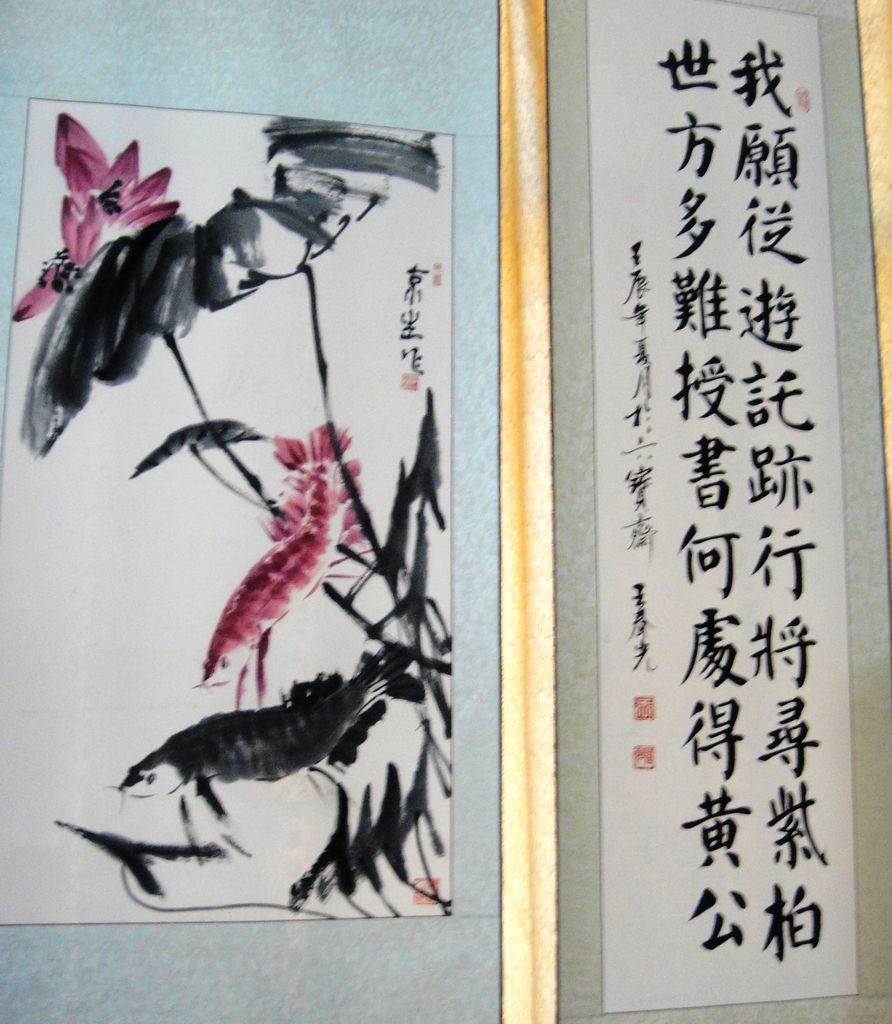 我願從遊託跡行將尋紫柏
世方多難授書何處得黄公
壬辰年夏月於六寶齋 王春光
京生作